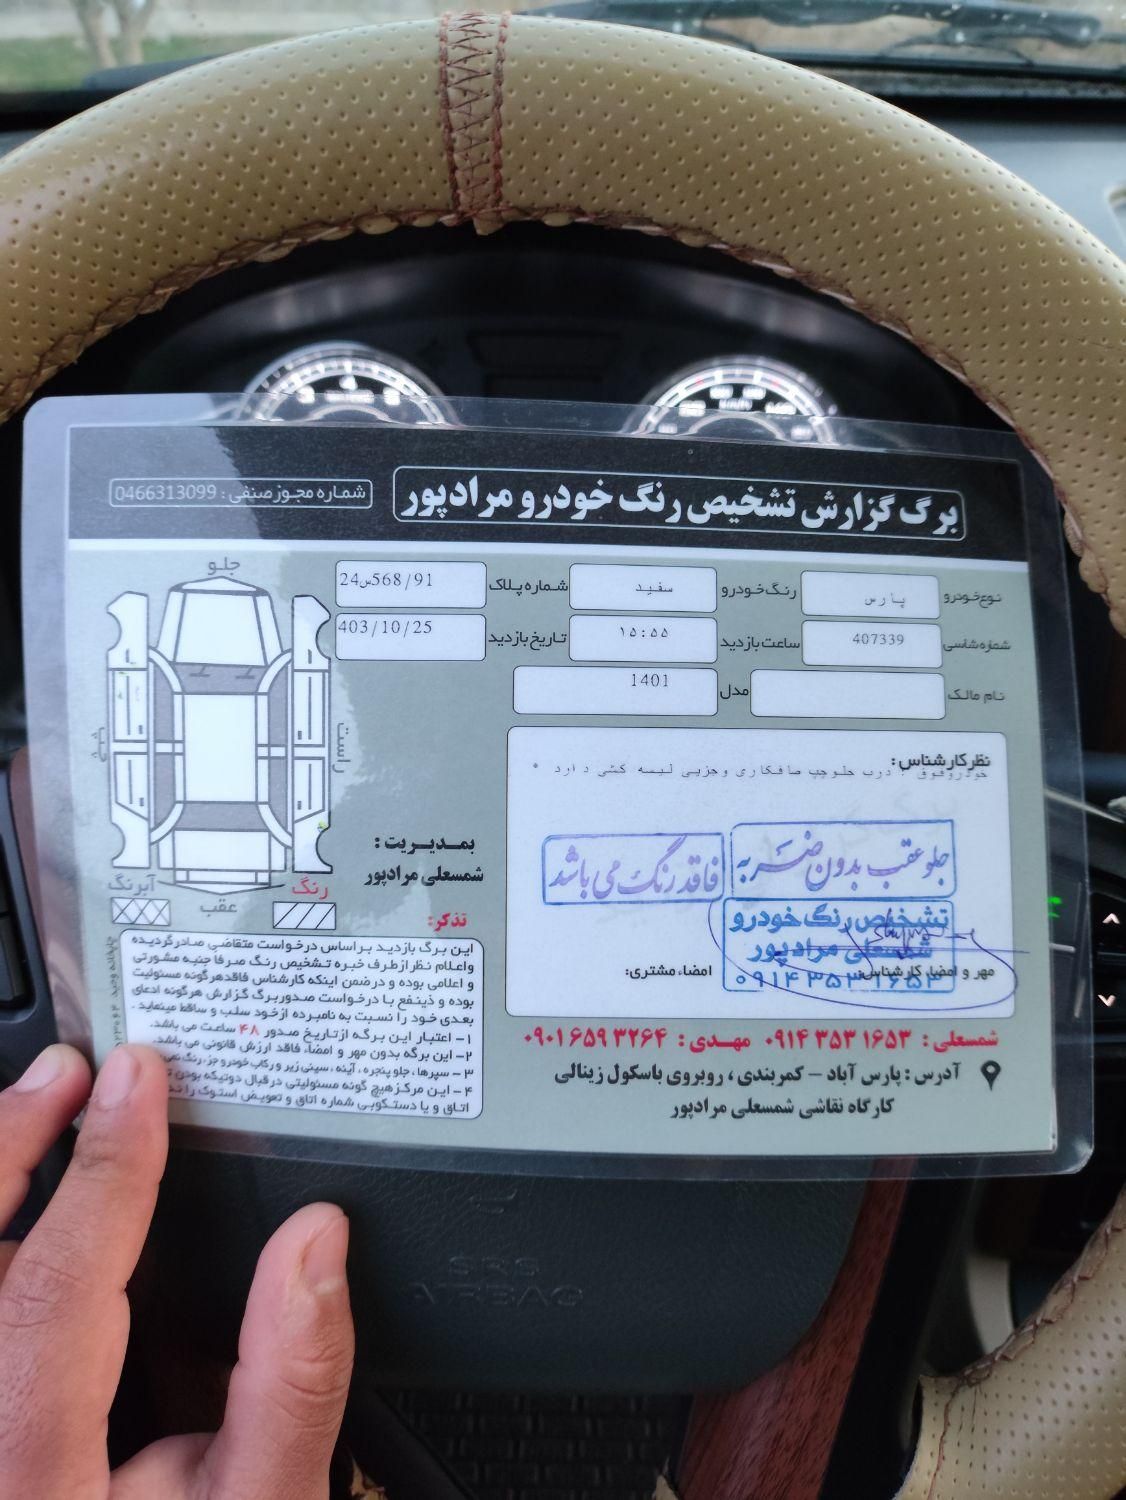 برگ گزارش تشخیص رنگ خودرو مرادپور
شماره مجوز صنفی : 0466313099
نوع خودرو پارس رنگ خودرو سفید شماره پلاک 24س568/91
شماره شاسی 407339 ساعت بازدید ۱۵:۵۵ تاریخ بازدید 403/10/25
نام مالک مدل 1401
جلو
چپ
راست
عقب
آبرنگ
رنگ
نظر کارشناس :
خودروفوق : درب جلوچپ صافکاری وجزیی لیسه کشی دارد *
جلو عقب بدون ضربه
فاقد رنگ می باشد
تشخیص رنگ خودرو
شمسعلی مرادپور
۰۹۱۴ ۳۵۳ ۱۶۵۳
مهر و امضاء کارشناس:
امضاء مشتری:
بمدیریت :
شمسعلی مرادپور
تذکر:
این برگ بازدید براساس درخواست متقاضی صادرگردیده
واعلام نظر ازطرف خبره تشخیص رنگ صرفا جنبه مشورتی
و اعلامی بوده و درضمن اینکه کارشناس فاقدهرگونه مسئولیت
بوده و ذینفع با درخواست صدوربرگ گزارش هرگونه ادعای
بعدی خود را نسبت به نامبرده ازخود سلب و ساقط مینماید .
۱- اعتبار این برگه ازتاریخ صدور ۴۸ ساعت می باشد.
۲- این برگه بدون مهر و امضاء فاقد ارزش قانونی می باشد.
۳- سپرها ، جلو پنجره ، آینه ، سینی زیر و رکاب خودرو جزء رنگ نمی
۴- این مرکز هیچ گونه مسئولیتی درقبال دوتیکه بودن
اتاق و یا دستکوبی شماره اتاق و تعویض استوک را
چاپخانه وحید
شمسعلی : ۰۹۱۴ ۳۵۳ ۱۶۵۳ مهدی : ۰۹۰۱ ۶۵۹ ۳۲۶۴
آدرس : پارس آباد – کمربندی ، روبروی باسکول زینالی
کارگاه نقاشی شمسعلی مرادپور
SRS
AIRBAG